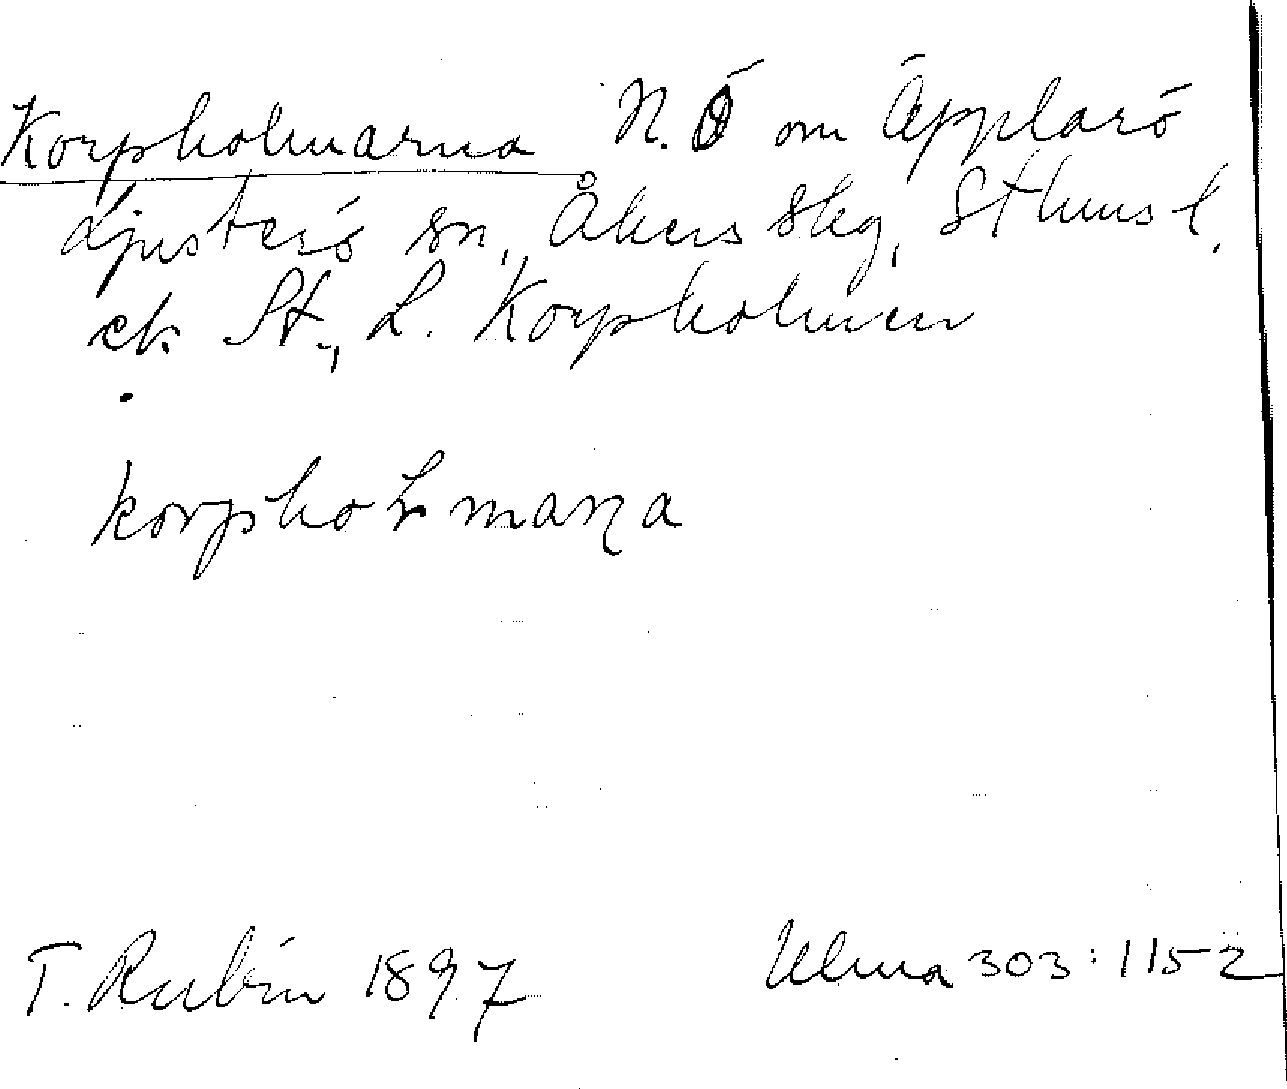 Korpholmarna N.Ö om Äpplarö
Ljusterö sn, Åkers skg, Sthms l.
ek. St., L. Korpholmen
korpholmaṉa
T. Rubin 1897 Ulma 303:1152